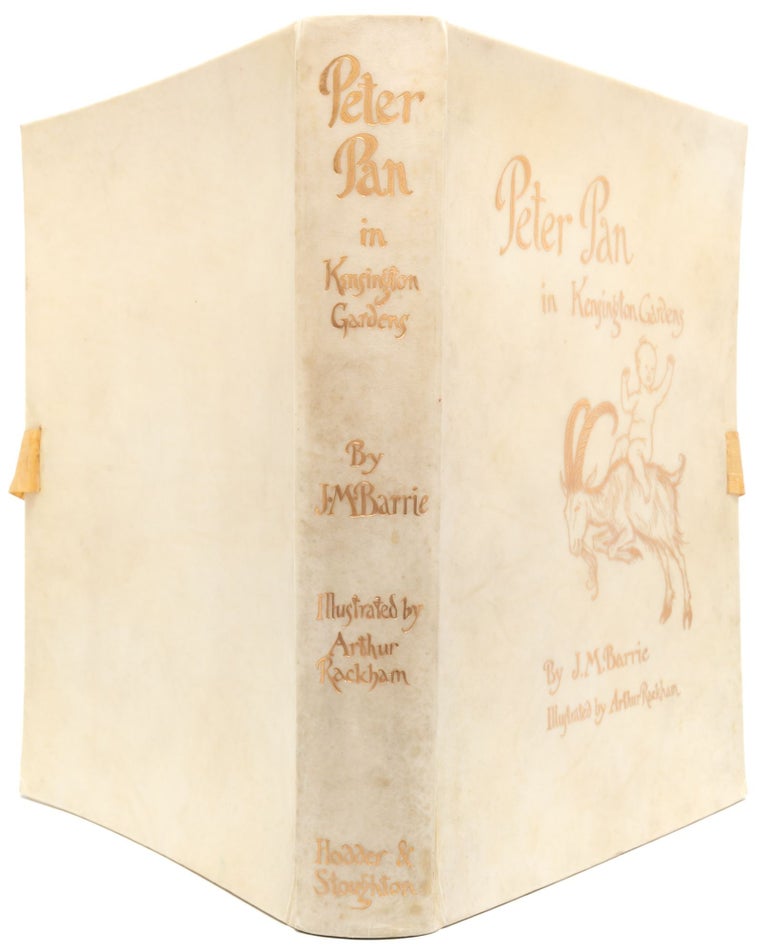 Peter
Pan
in
Kensington
Gardens
By
J.M.Barrie
Illustrated by
Arthur
Rackham
Hodder &
Stoughton
Peter Pan
in Kensington Gardens
By J.M.Barrie
Illustrated by Arthur Rackham